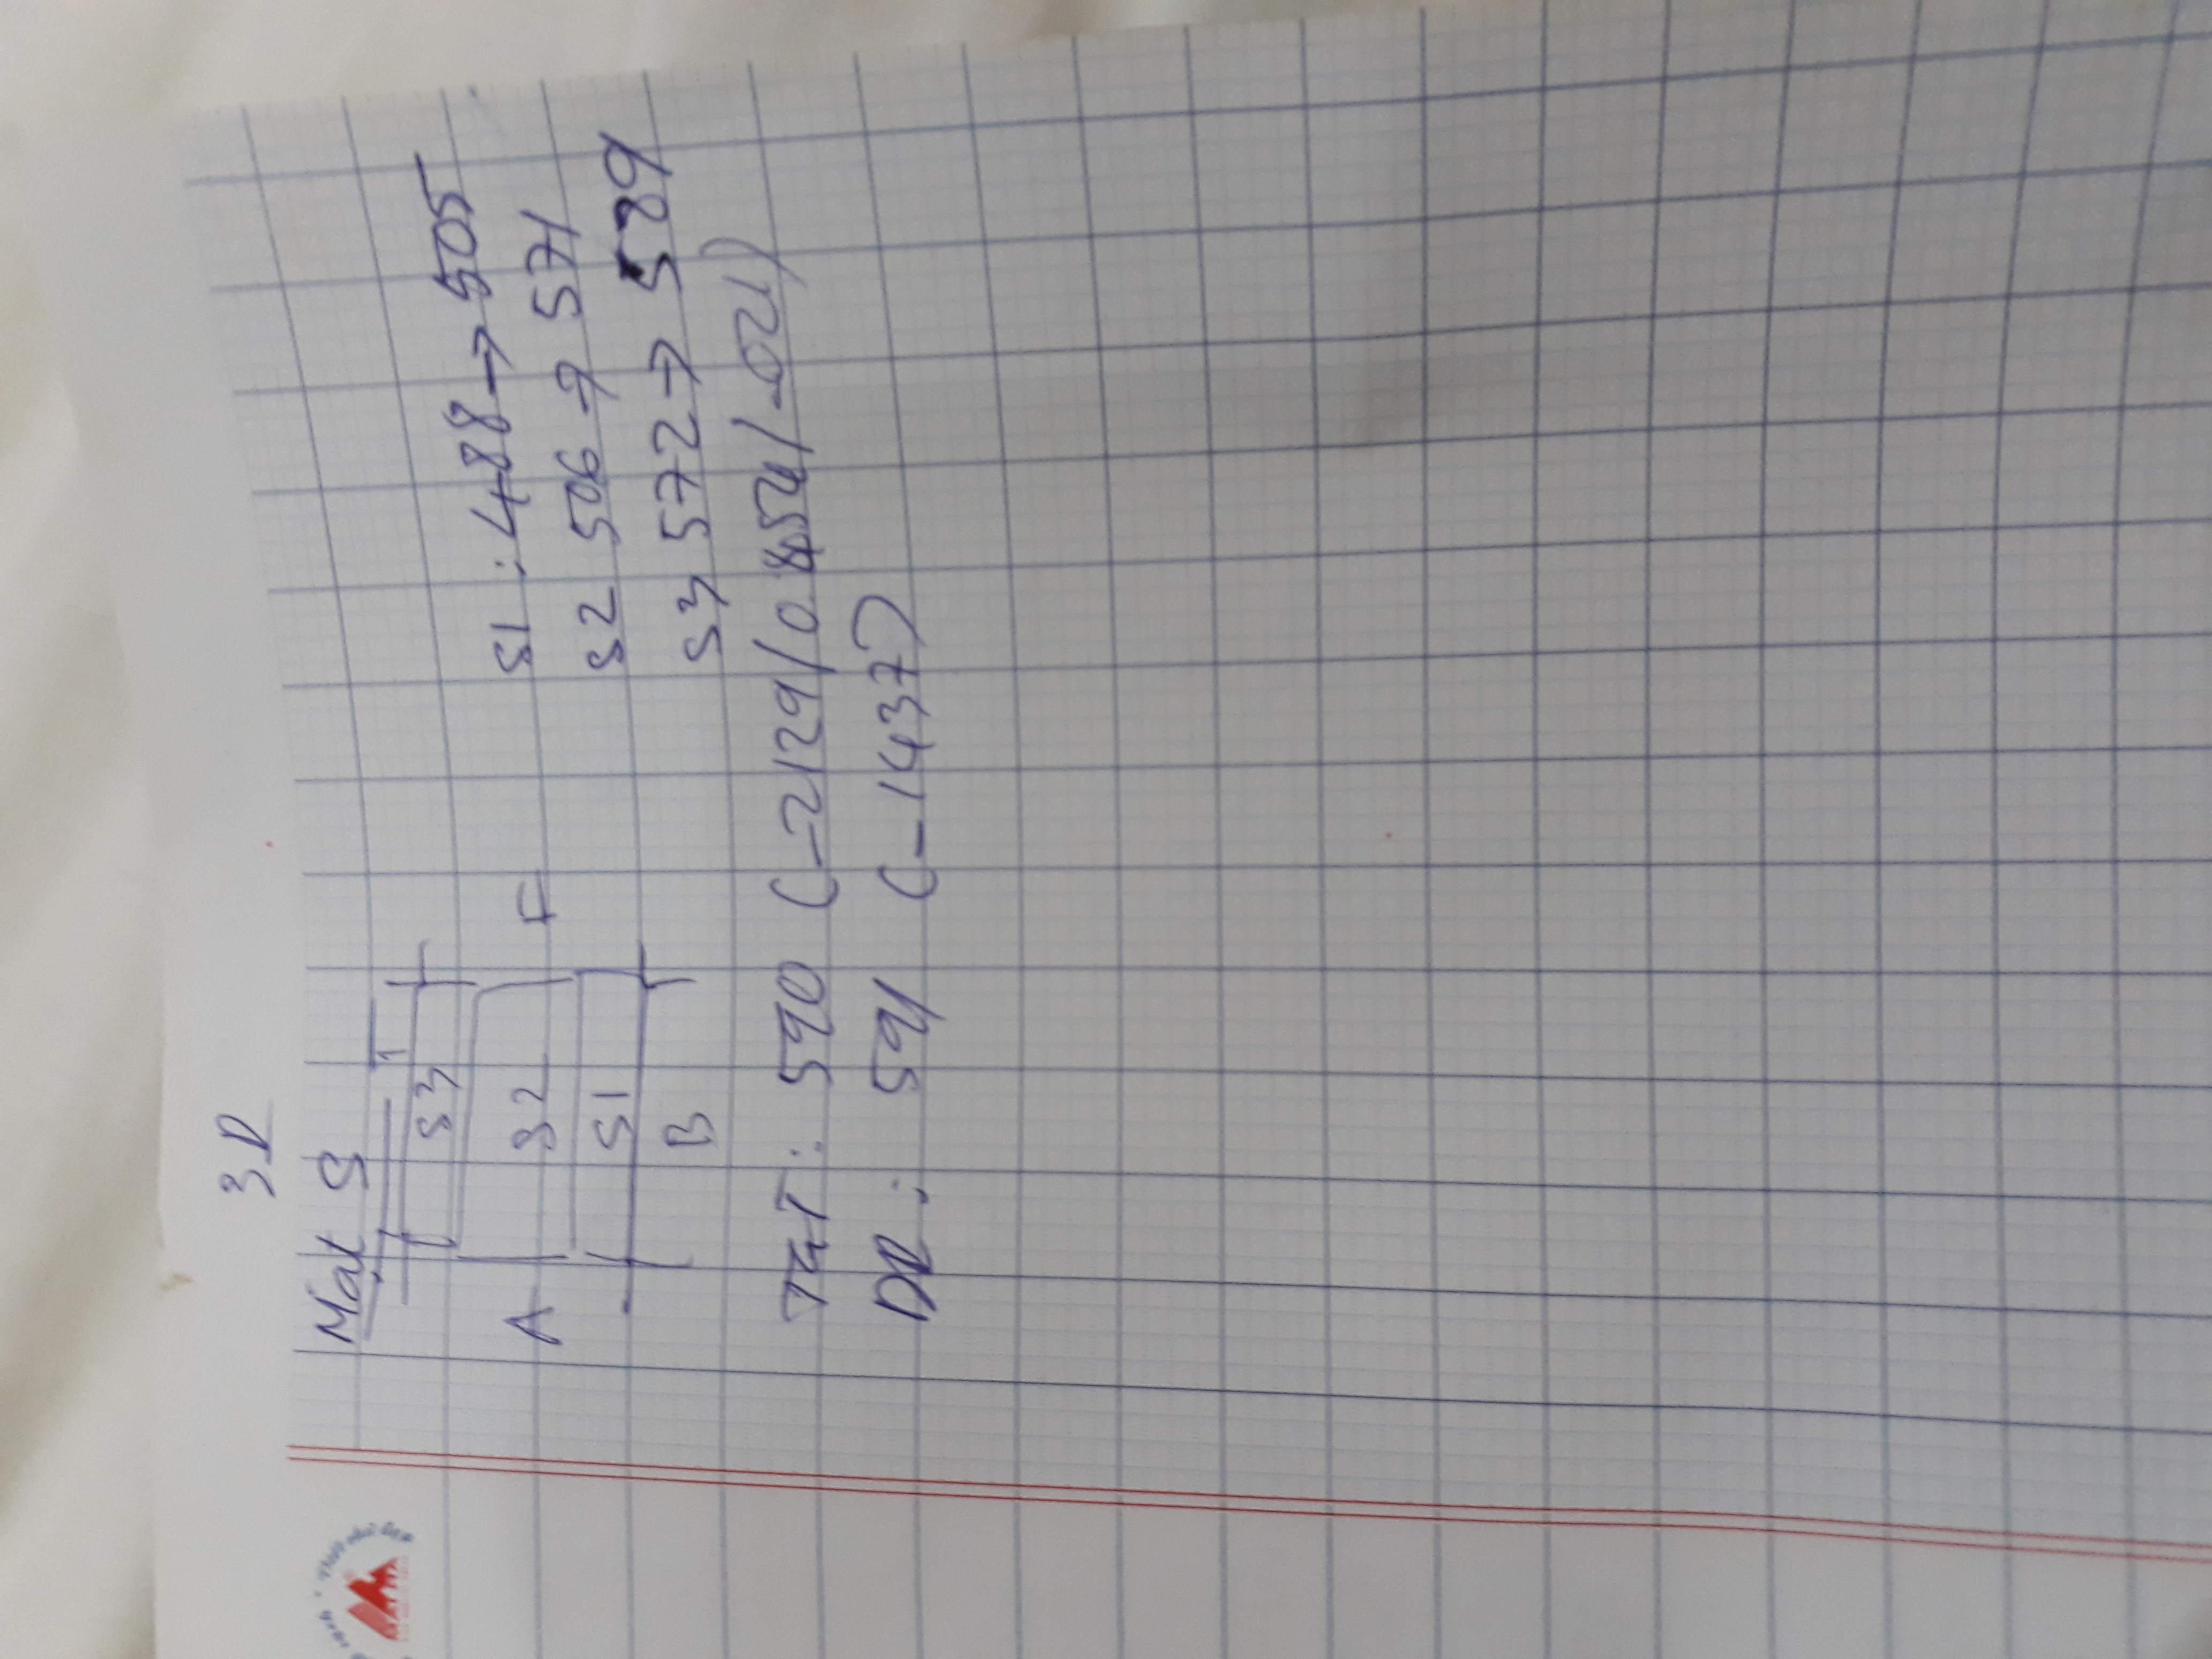 3D
Mặt S
T
S3
A S2 F
S1
B
S1 : 488 → 505
S2 506 → 571
S3 572 → 589
TGT : 590 (-2129/0.454/-021)
DR : 591 (-1437)